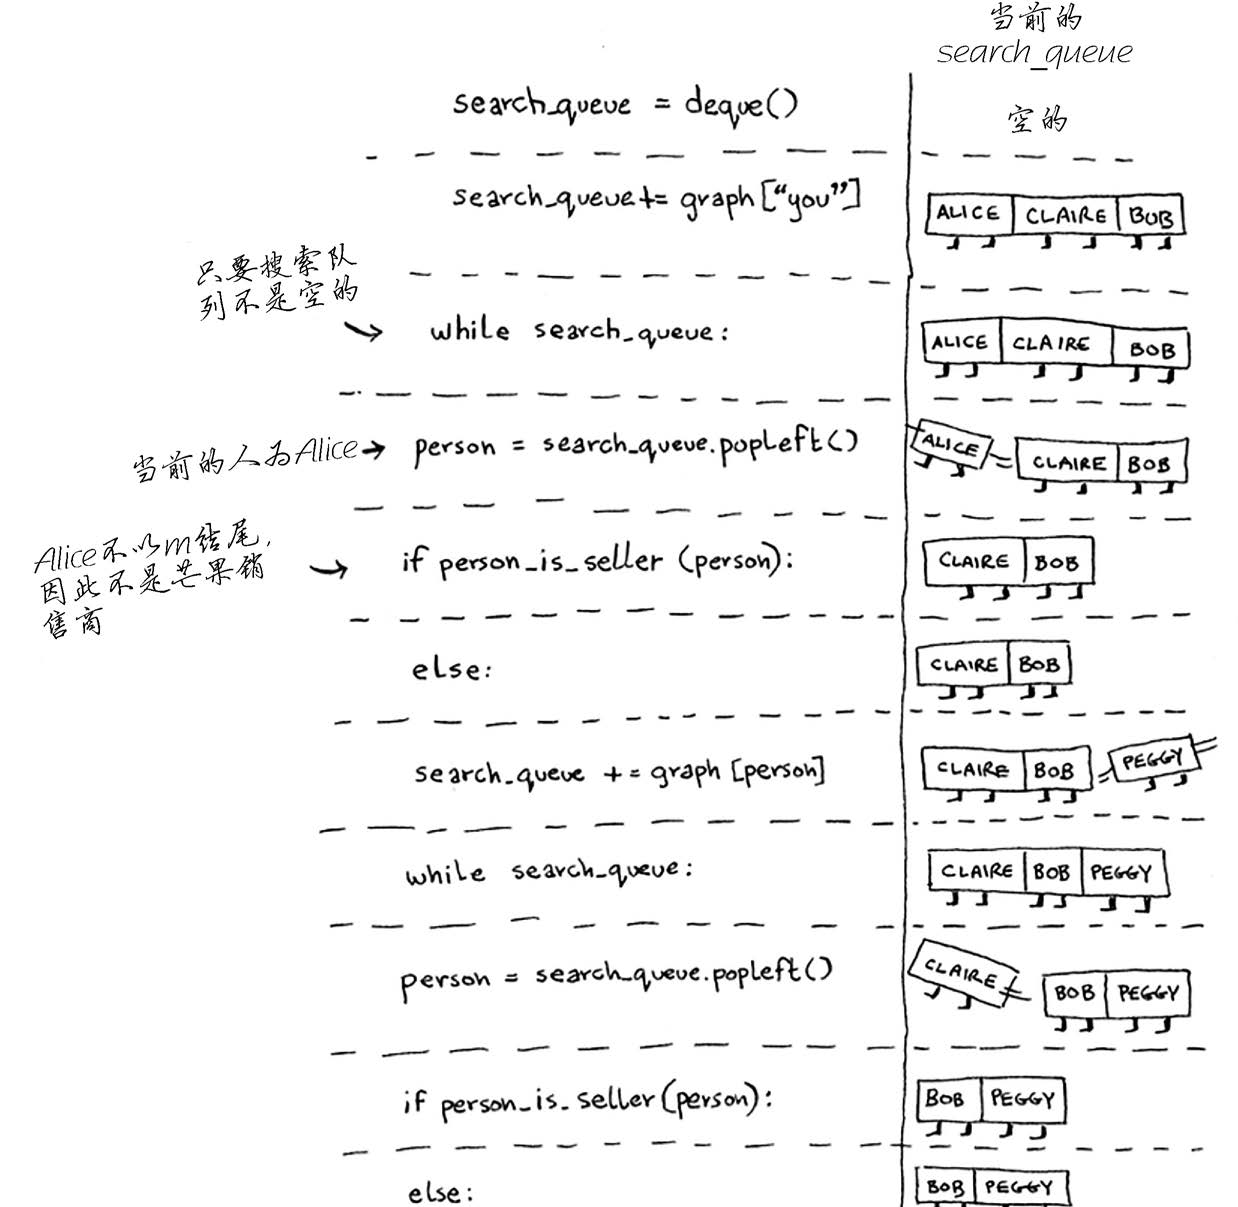 当前的
search_queue
search_queue = deque()
空的
search_queue += graph["you"]
ALICE CLAIRE BOB
只要搜索队
列不是空的
while search_queue:
ALICE CLAIRE BOB
当前的人为Alice
person = search_queue.popleft()
ALICE CLAIRE BOB
Alice不以m结尾,
因此不是芒果销
售商
if person_is_seller (person):
CLAIRE BOB
else:
CLAIRE BOB
search_queue += graph [person]
CLAIRE BOB PEGGY
while search_queue:
CLAIRE BOB PEGGY
person = search_queue.popleft()
CLAIRE BOB PEGGY
if person_is_seller (person):
BOB PEGGY
else:
BOB PEGGY